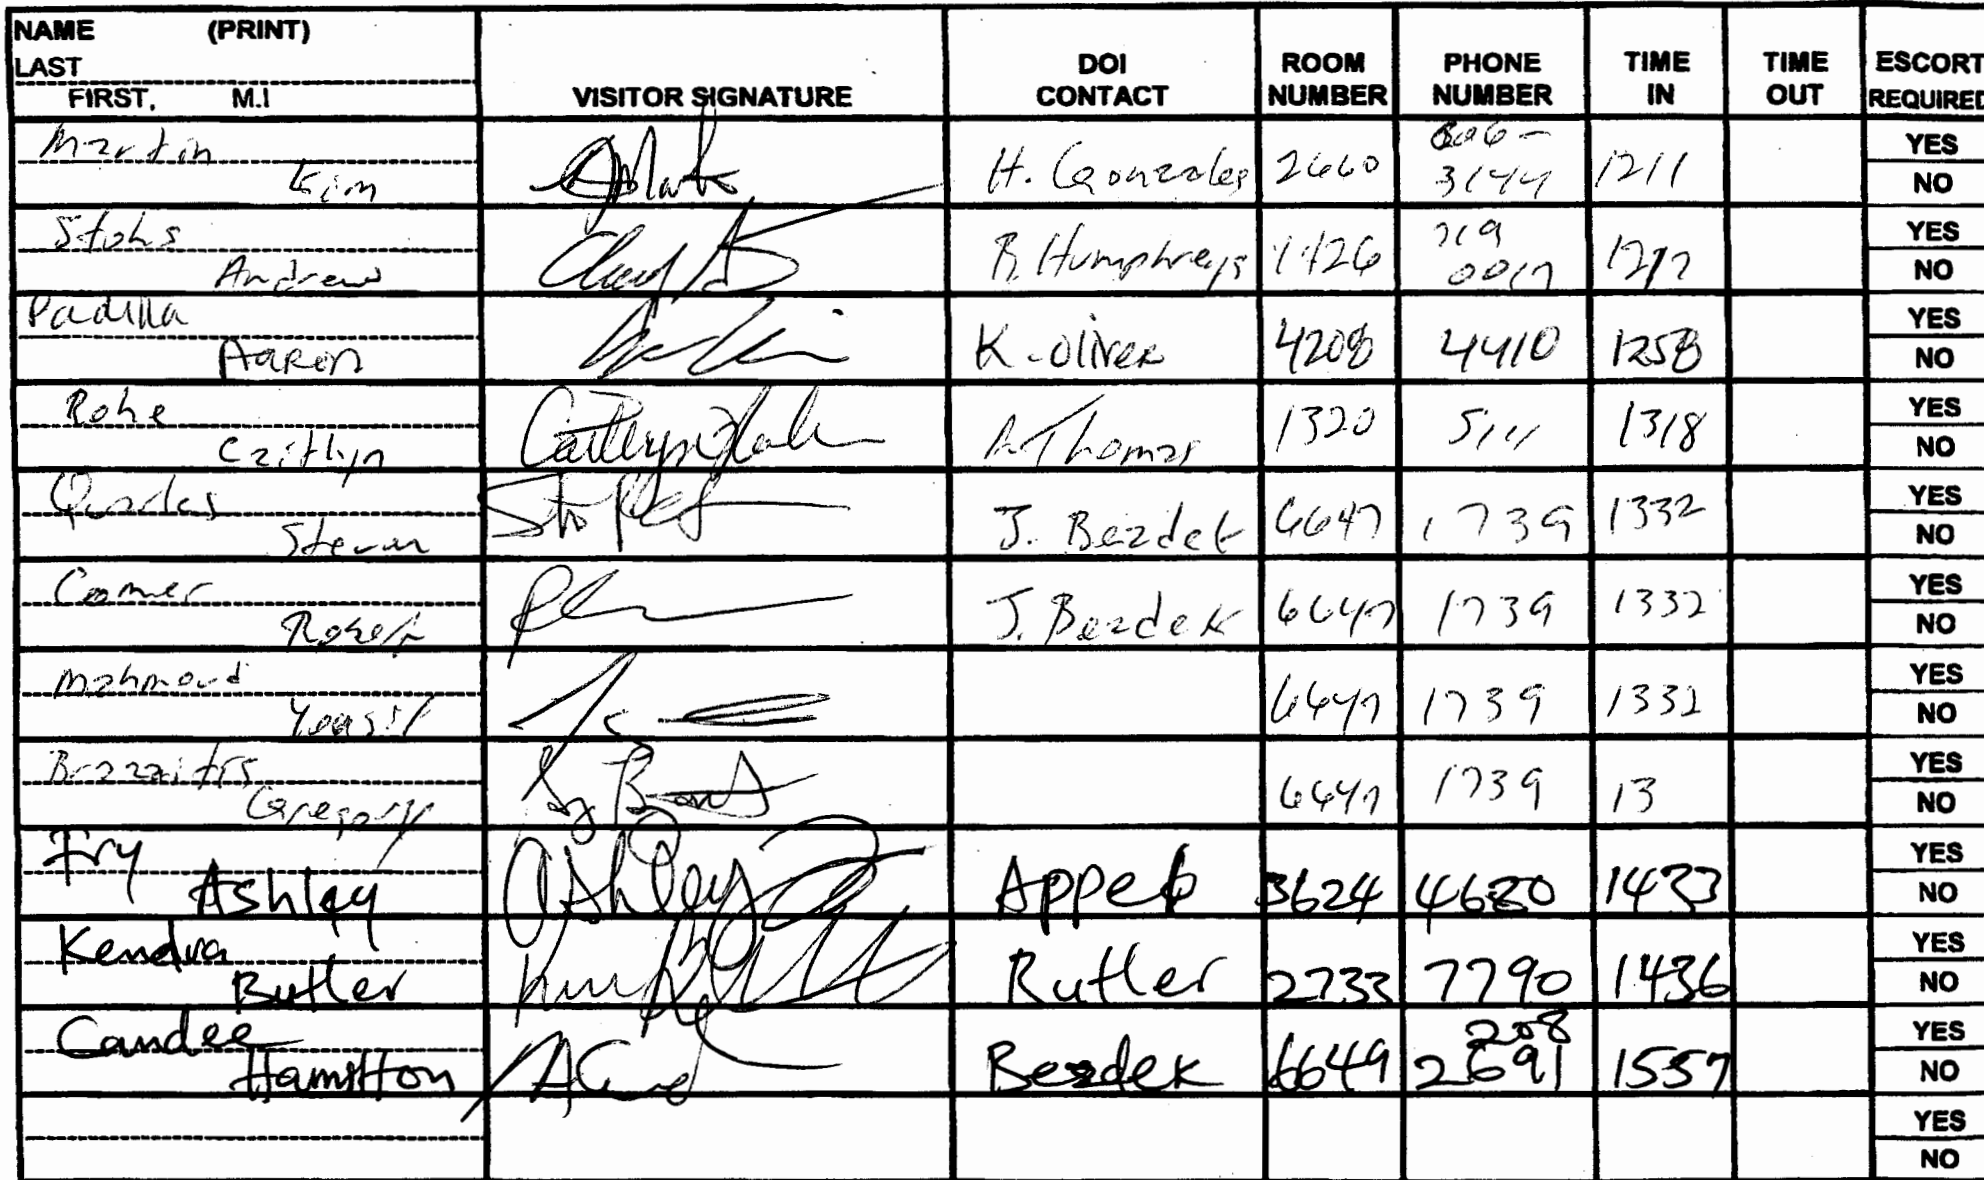 NAME (PRINT)
LAST
FIRST, M.I
VISITOR SIGNATURE
DOI CONTACT
ROOM NUMBER
PHONE NUMBER
TIME IN
TIME OUT
ESCORT REQUIRED
Martin
Kim
H. Gonzales 2660 3144 1211
YES
NO
Stohs
Andrew
R. Humphreys 1426 0017
YES
NO
Padilla
Aaron
K. Oliver 4208 4410 1258
YES
NO
Rohe
Caitlyn
A. Thomas 1320 1318
YES
NO
Quarles
Steven
J. Bezdek 6647 1739 1332
YES
NO
Comer
Robert
J. Bezdek 6647 1739 1332
YES
NO
Mahmoud
6647 1739 1332
YES
NO
Gregory
6647 1739 13
YES
NO
Fry
Ashley
Ashley
3624 4680 1433
YES
NO
Kendra
Butler
Rutler 2733 7790 1436
YES
NO
Candee
Hamilton
208
Bezdek 6649 2691 1557
YES
NO
YES
NO